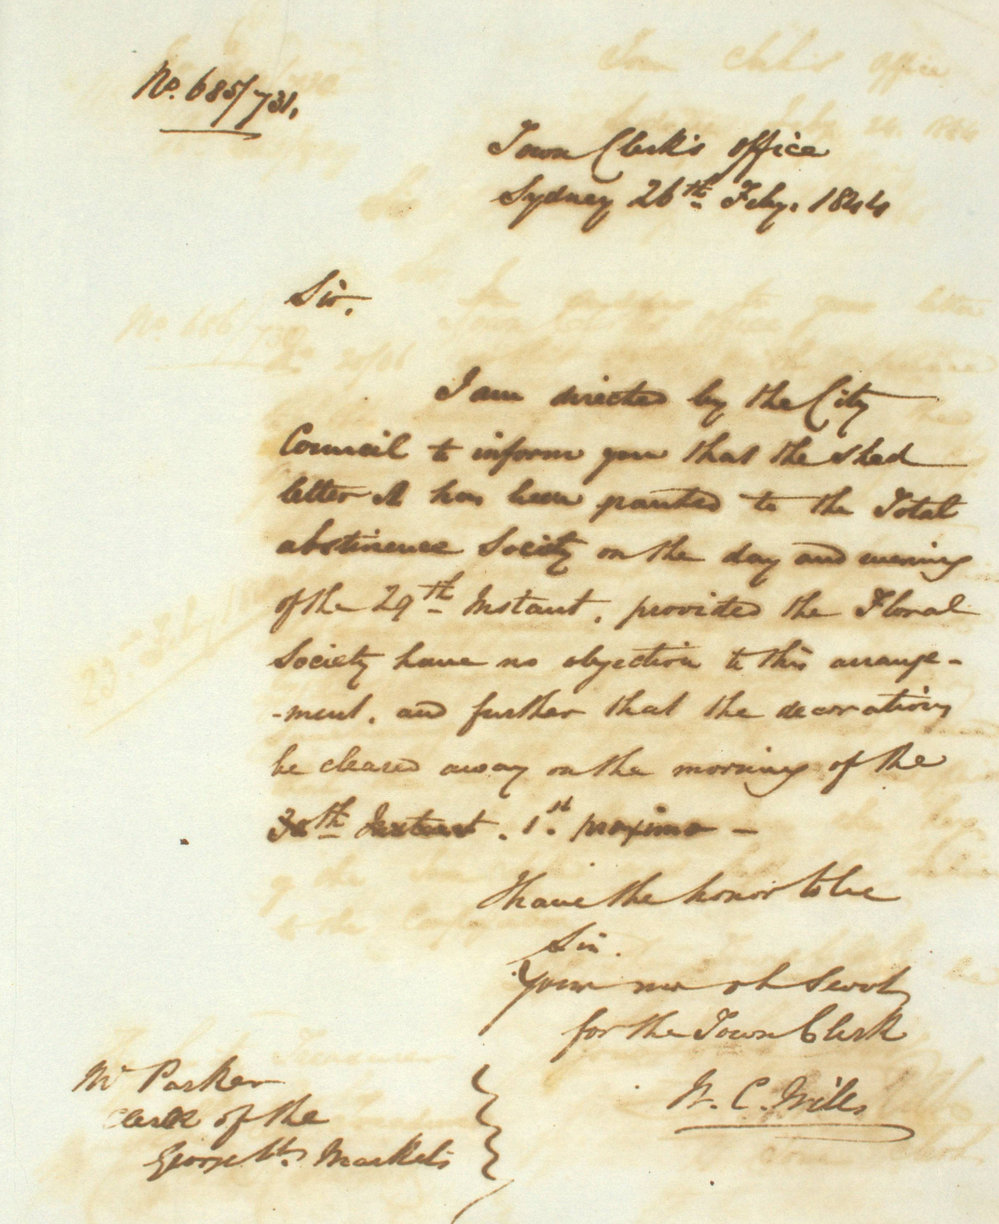 No. 685/731.
Town Clerk's office
Sydney 26th Feby. 1844
Sir,
I am directed by the City
Council to inform you that the shed
letter A has been granted to the Total
abstinence Society on the day and evening
of the 29th Instant, provided the Floral
Society have no objection to this arrange-
-ment, and further that the decorations
be cleared away on the morning of the
30th Instant. 1st. proximo -
I have the honor to be
Sir
Your mo ob Servt
for the Town Clerk
W. C. Wills
Mr Parker
Clerk of the
George St. Markets